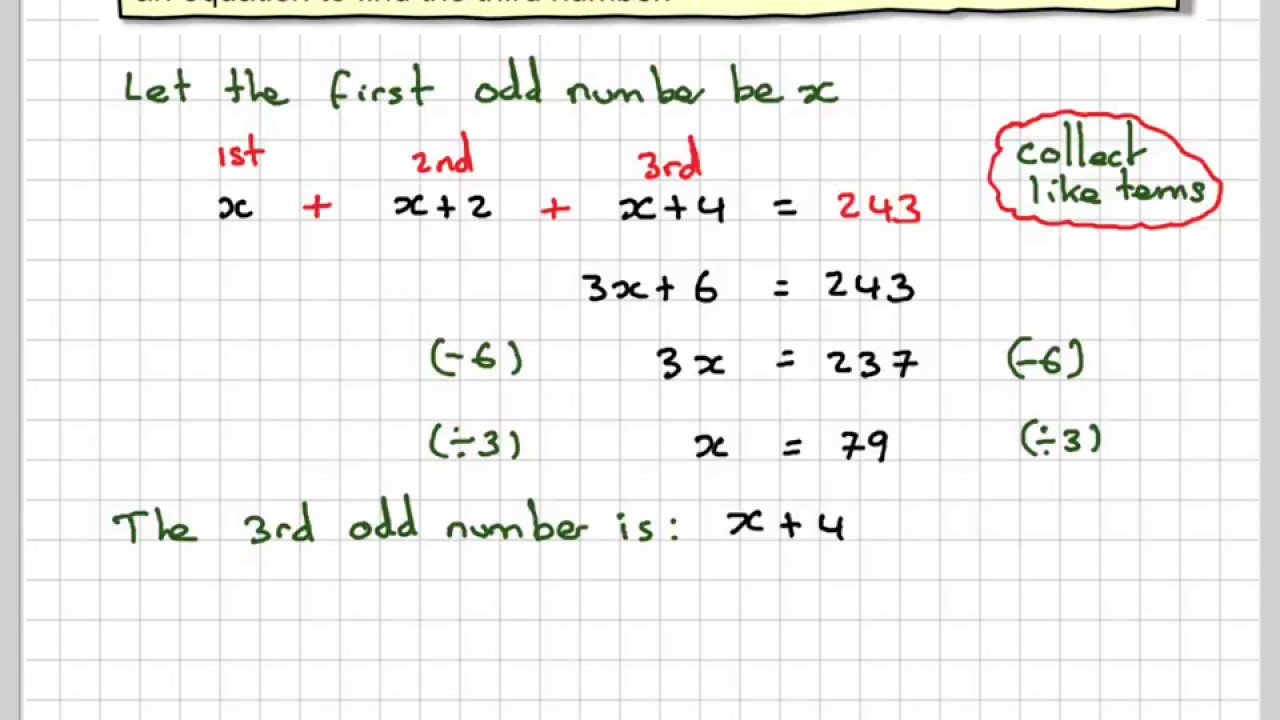 an equation to find the third number.
Let the first odd number be x
1st 2nd 3rd
x + x+2 + x+4 = 243
collect
like terms
3x+ 6 = 243
(-6) 3x = 237 (-6)
(÷3) x = 79 (÷3)
The 3rd odd number is: x+4